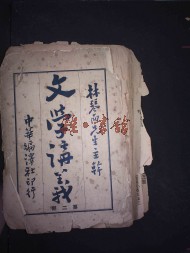 林琴南先生主幹
文學講義
第二期
中華編譯社印行